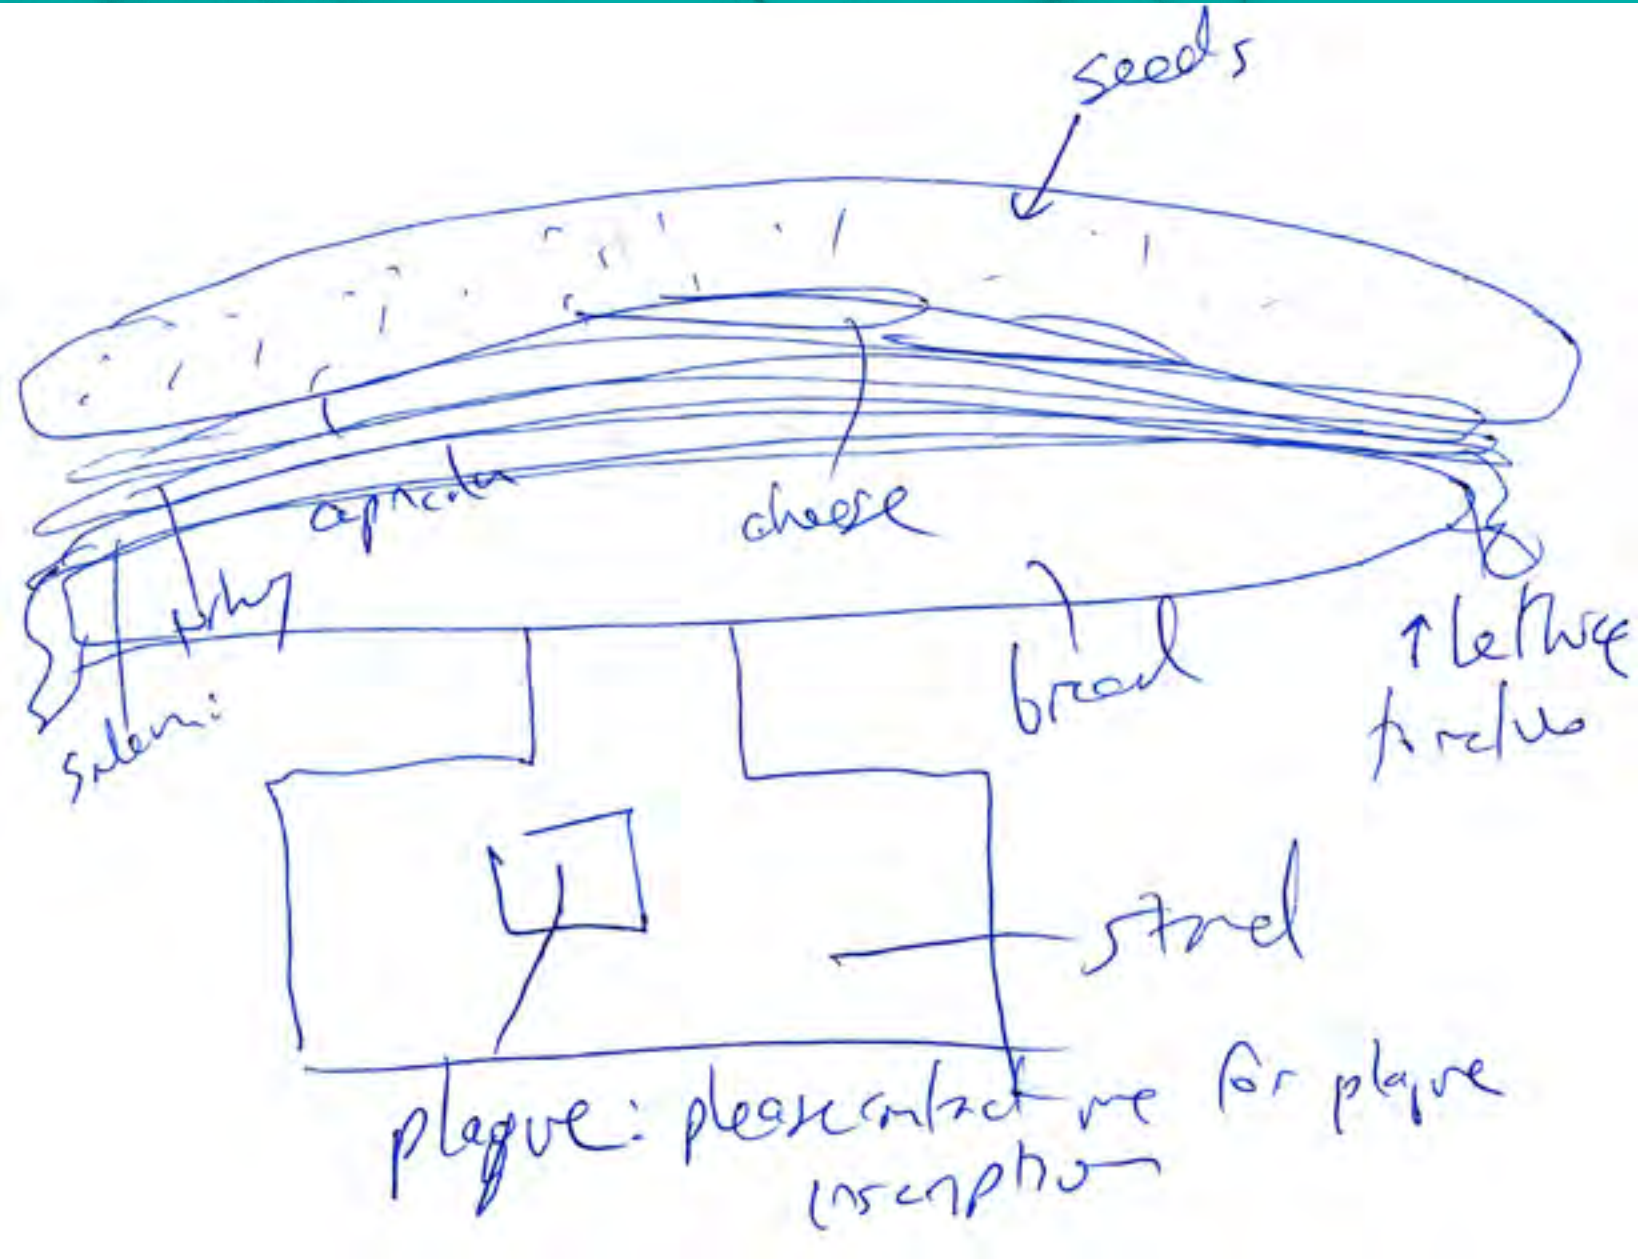 seeds
capricola
cheese
turkey
bread
↑ lettuce
tomatoes
salami
stand
plaque: please contact me for plaque
inscription